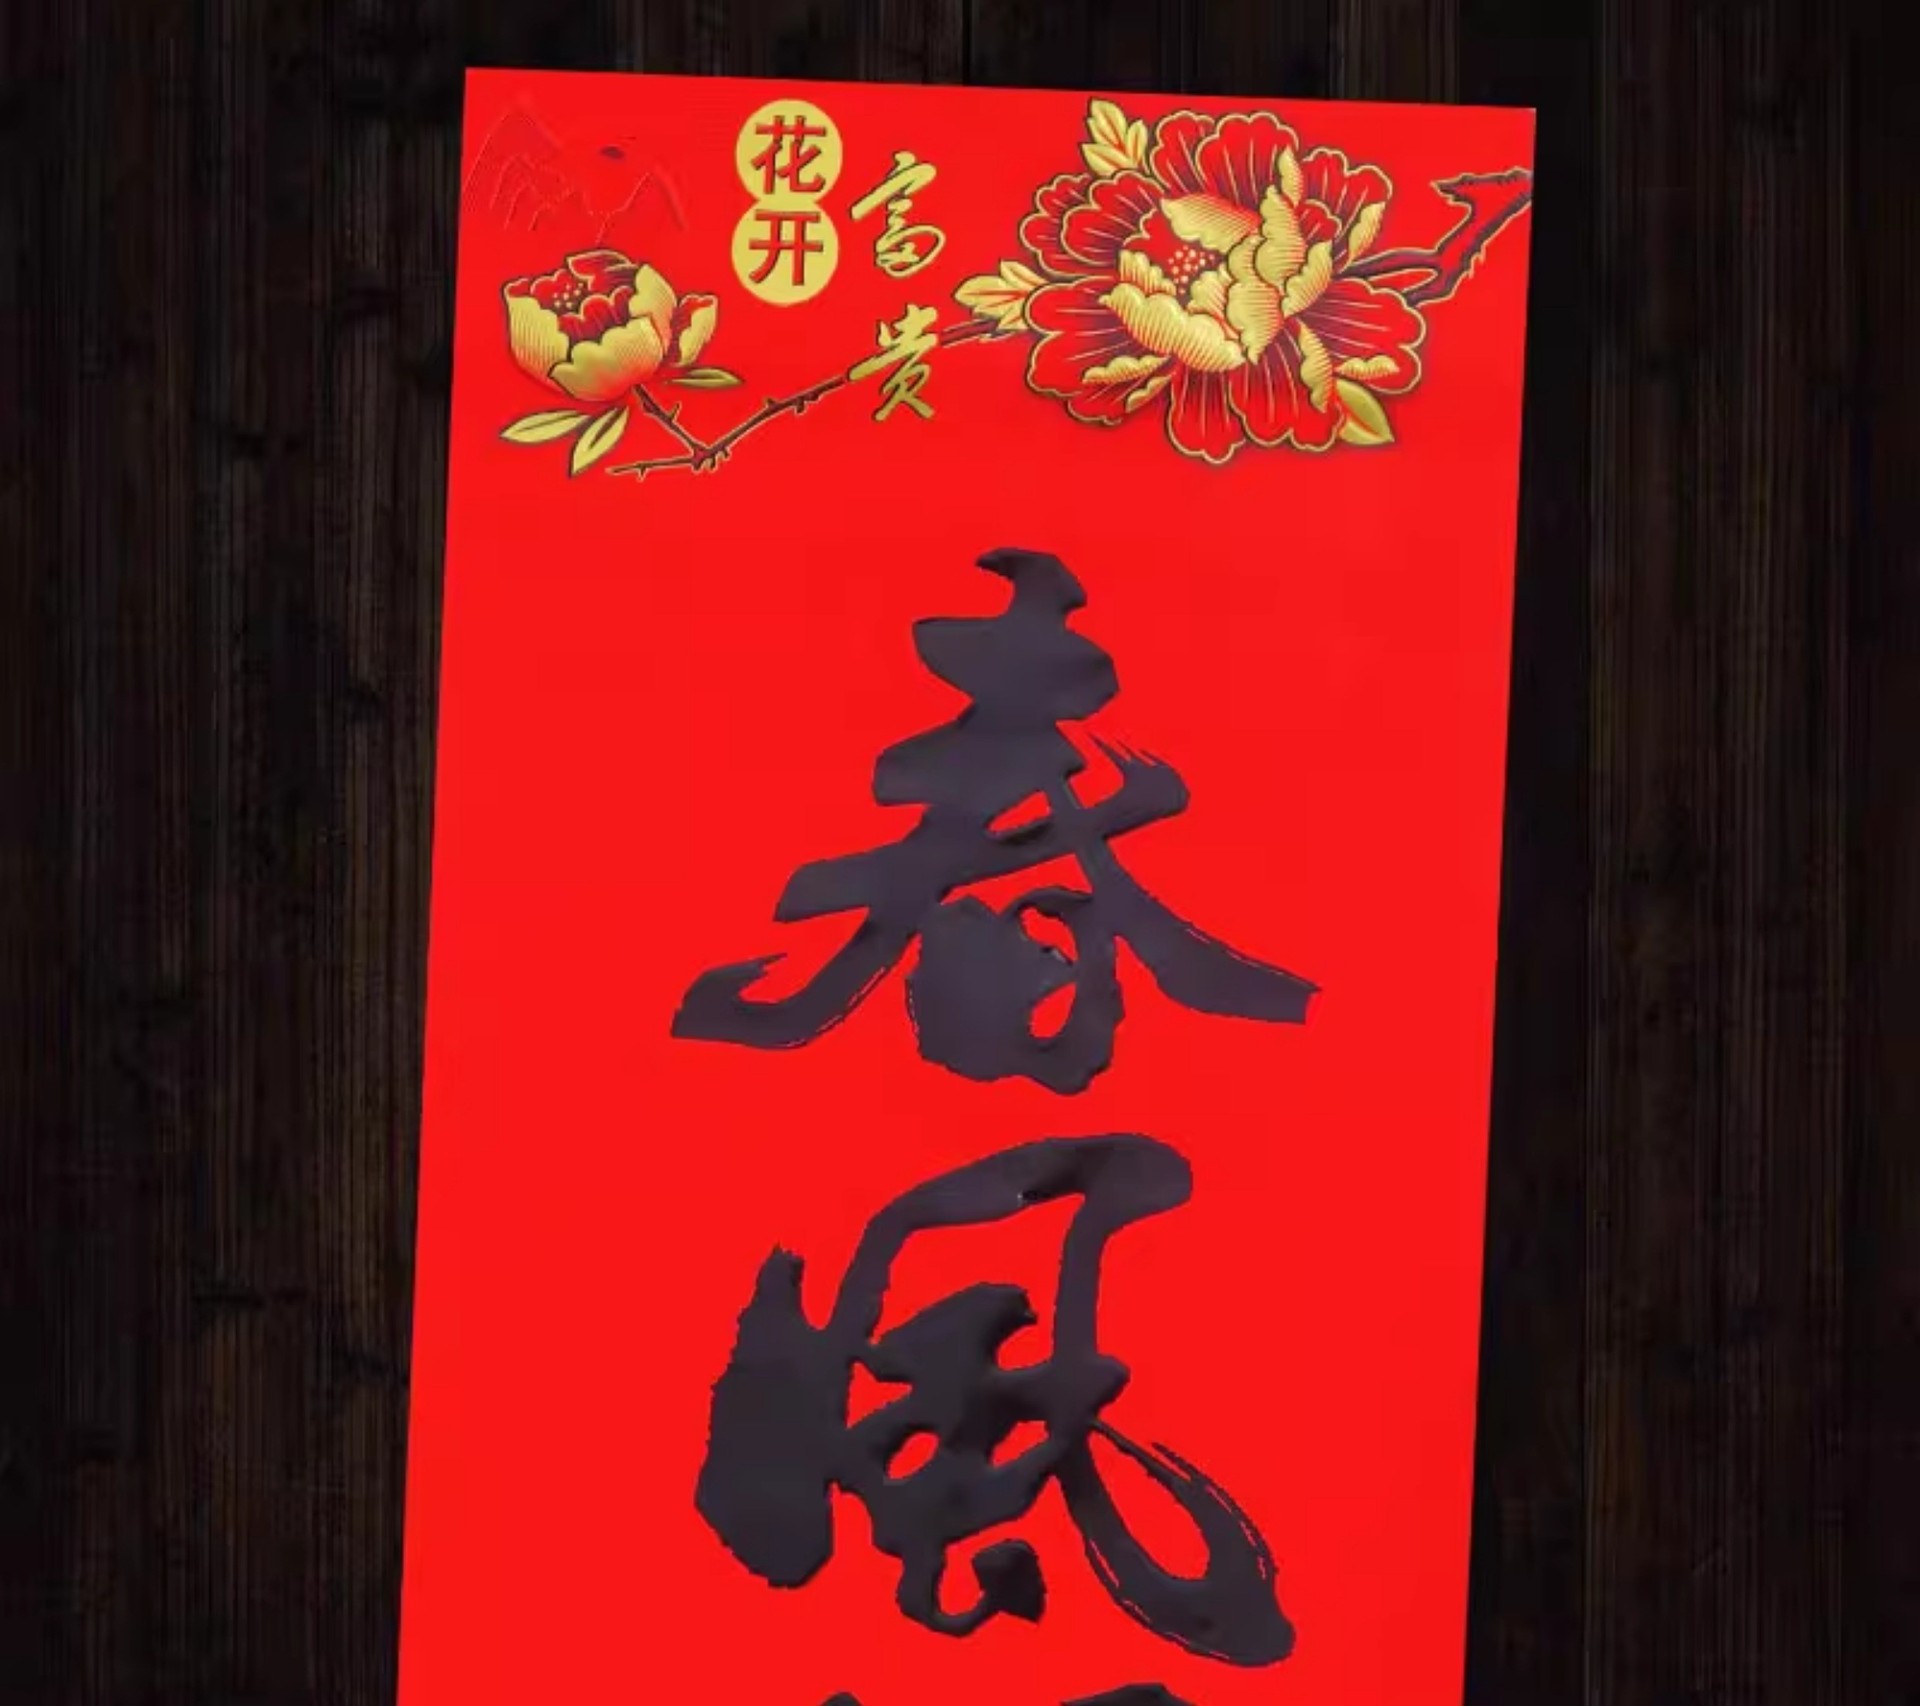 花开
富贵
春風